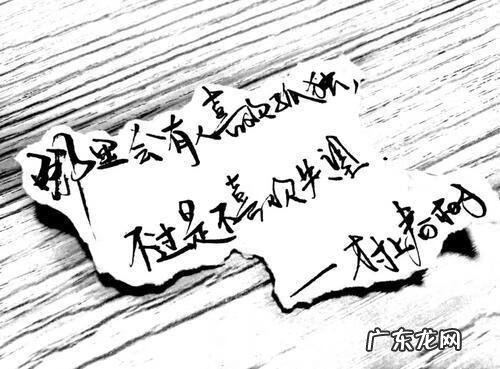 哪里会有人喜欢孤独，
不过是不喜欢失望.
一村上春树
广东龙网